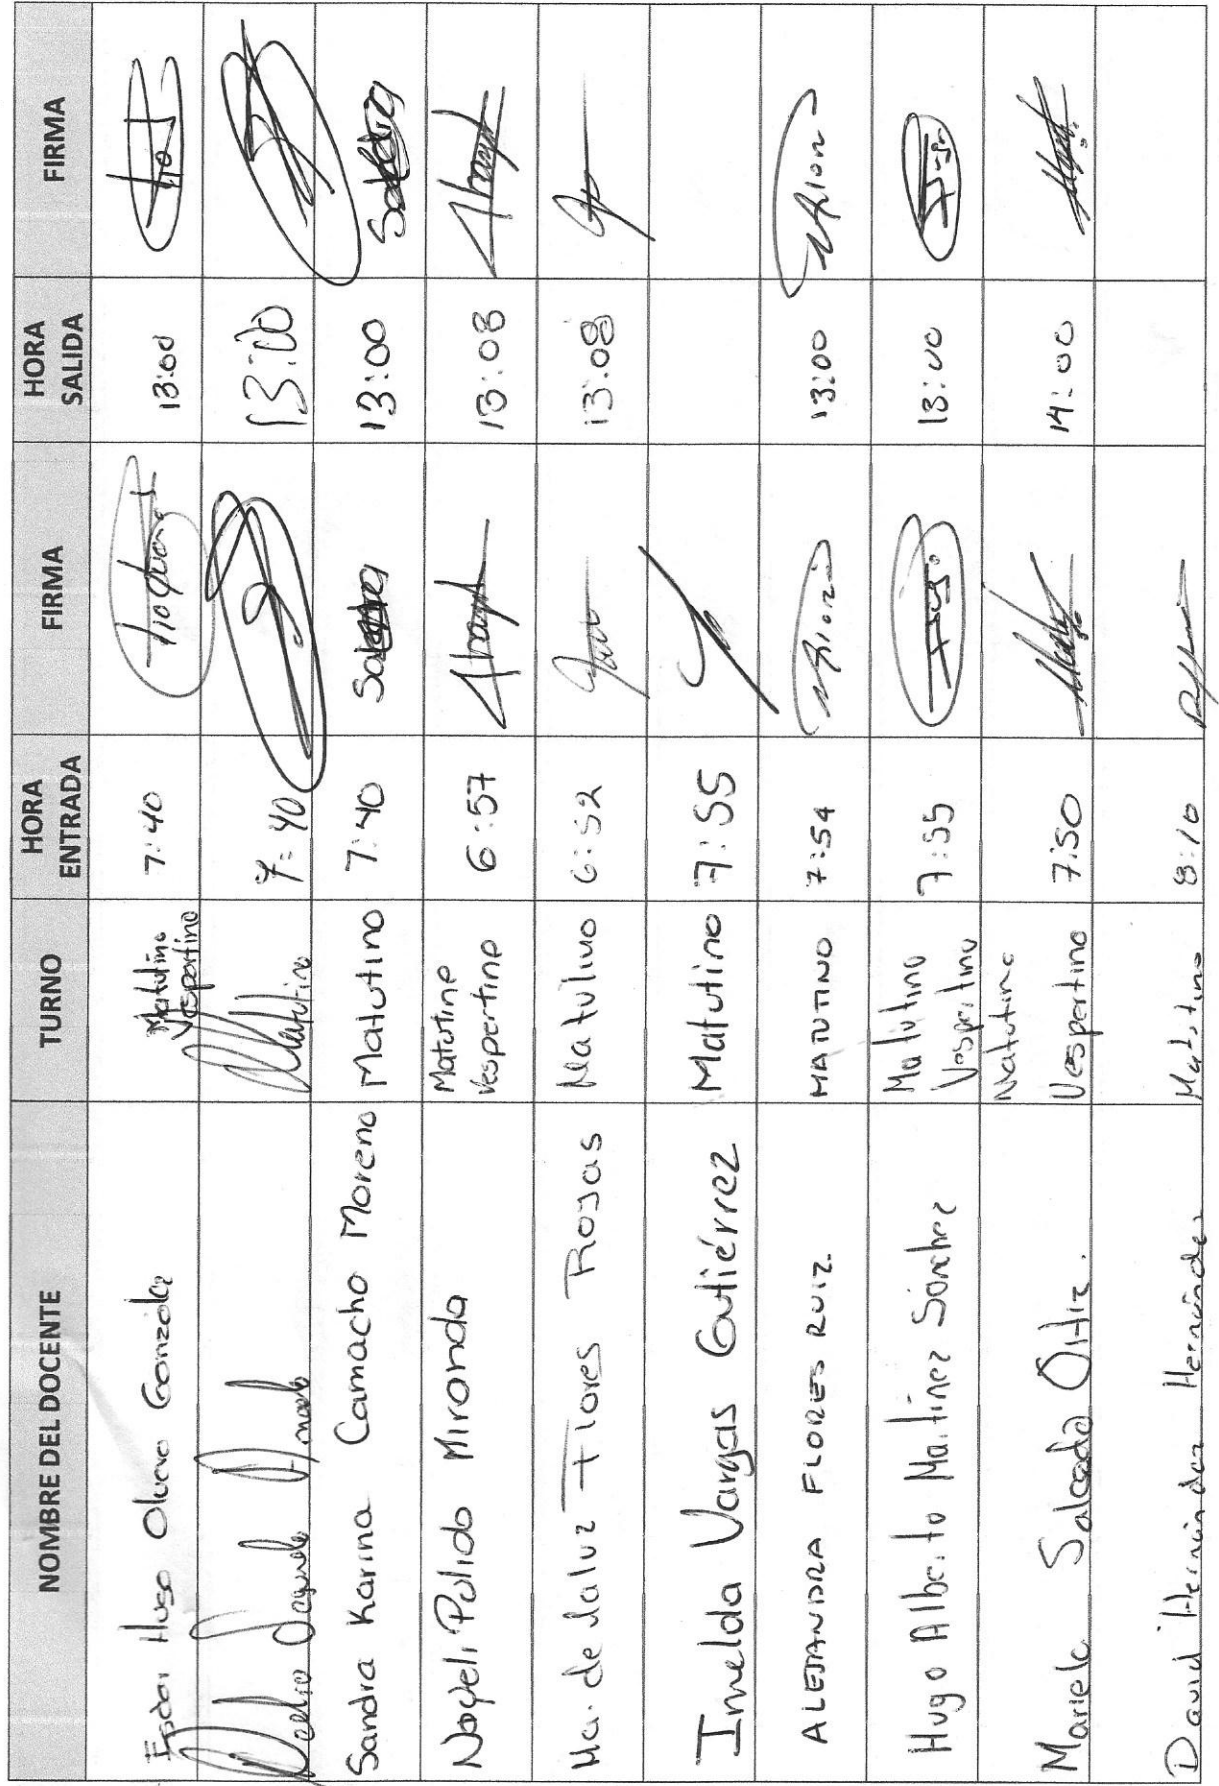 NOMBRE DEL DOCENTE TURNO HORA ENTRADA FIRMA HORA SALIDA FIRMA
Hugo Olvera González Matutino Vespertino 7:40 13:00
Matutino 7:40 13:00
Sandra Karina Camacho Moreno Matutino 7:40 Sandra 13:00 Sandra
Nayeli Pulido Miranda Matutino Vespertino 6:57 13:08
Ma. de la luz Flores Rojas Matutino 6:52 13:08
Imelda Vargas Gutiérrez Matutino 7:55
ALEJANDRA FLORES RUIZ. MATUTINO 7:54 13:00
Hugo Alberto Martínez Sánchez Matutino Vespertino 7:55 Hugo 13:00 Hugo
Mariela Salcedo Ortiz. Matutino Vespertino 7:50 14:00
David Hernández Hernández Matutino 8:10